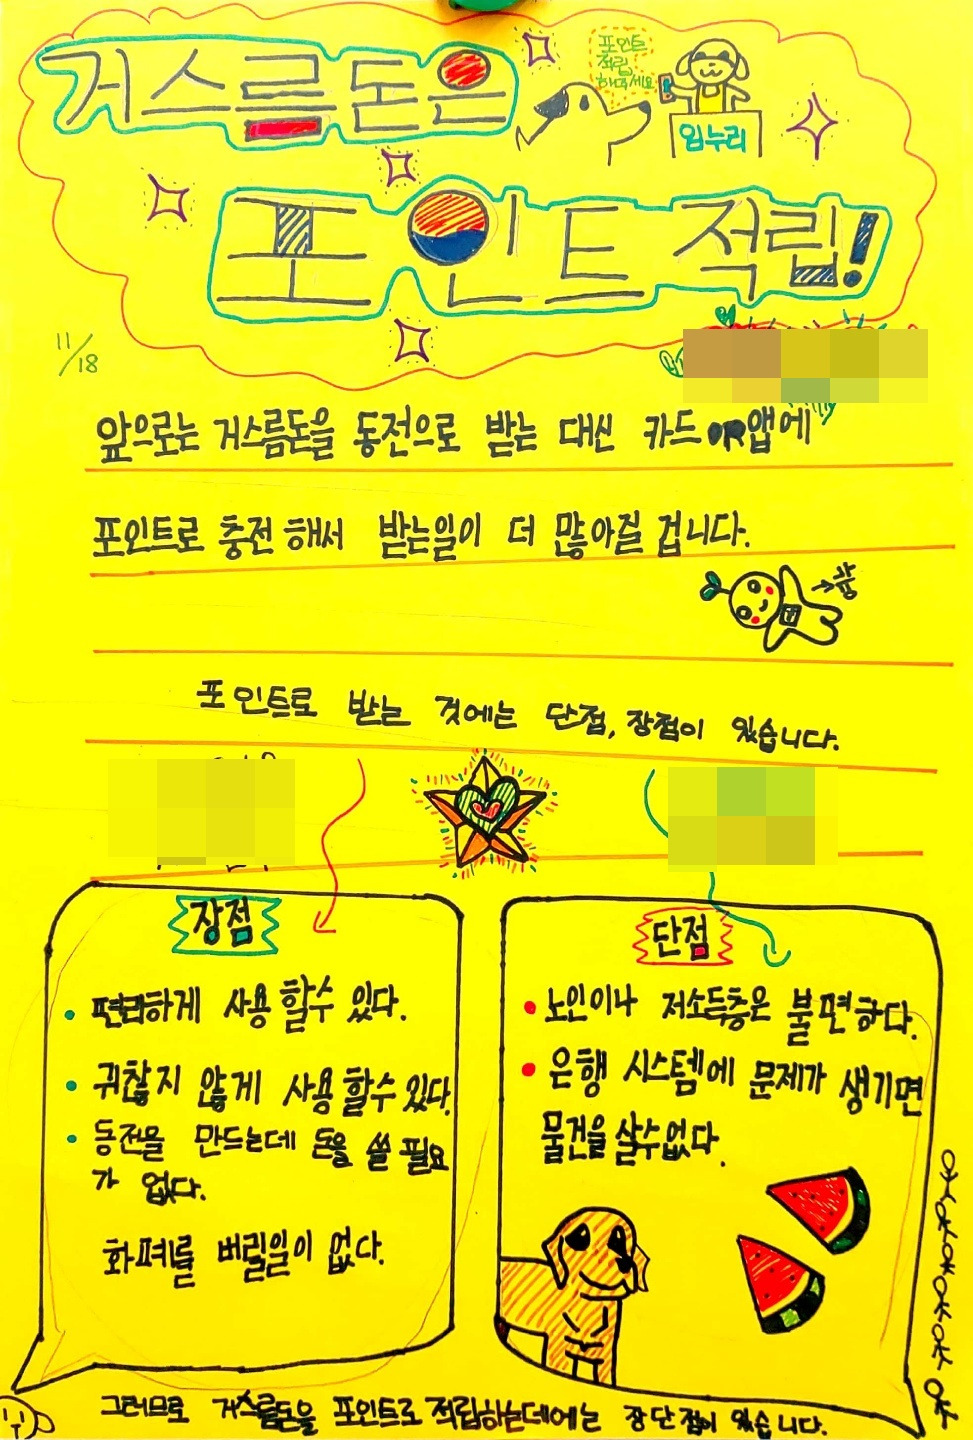 거스름돈은
포인트
적립
해주세요
임누리
포인트 적립!
11/18
앞으로는 거스름돈을 동전으로 받는 대신 카드 OR앱에
포인트로 충전 해서 받는일이 더 많아질 겁니다.
포인트로 받는 것에는 단점, 장점이 있습니다.
장점
편리하게 사용 할수 있다.
귀찮지 않게 사용 할수 있다.
동전을 만드는데 돈을 쓸 필요
가 없다.
화폐를 버릴일이 없다.
단점
노인이나 저소득층은 불편하다.
은행 시스템에 문제가 생기면
물건을 살수없다.
그러므로 거스름돈을 포인트로 적립하는데에는 장단점이 있습니다.